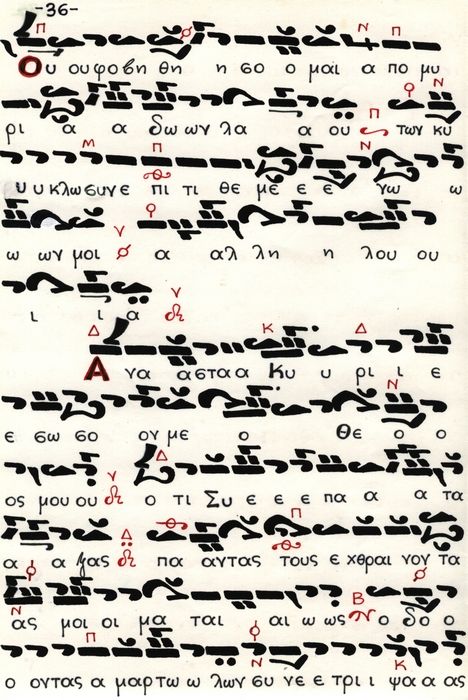 -36-
Ου ουφοβη θη η σο ο μαι α πο μυ
ρι α α δω ων λα α ού των κυ
υ υ κλω συν ε πι τι θε με ε ε νω ω
ω ων μοι α αλ λη η λου ου
ι ι α
Α να ασταα Κυ υ ρι ι ε
ε σω σο ον με ο Θε ο ο
ος μου ου ο τι Συ ε ε ε πα α α τα
α α ξας πα αντας τους ε χθραι νον τα
ας μοι οι μα ται αι ω ως ο δο ο
ο οντας α μαρτω ω λων συ νε ε τρι ι ψα α ας